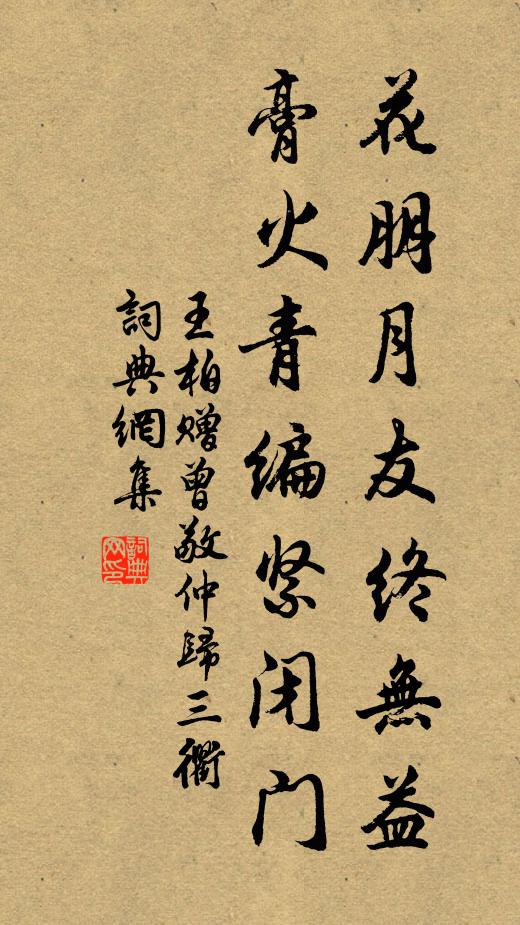 花朋月友终無益
膏火青编紧闭门
王柏赠曾敬仲歸三衢
詞典網集
詞典网印